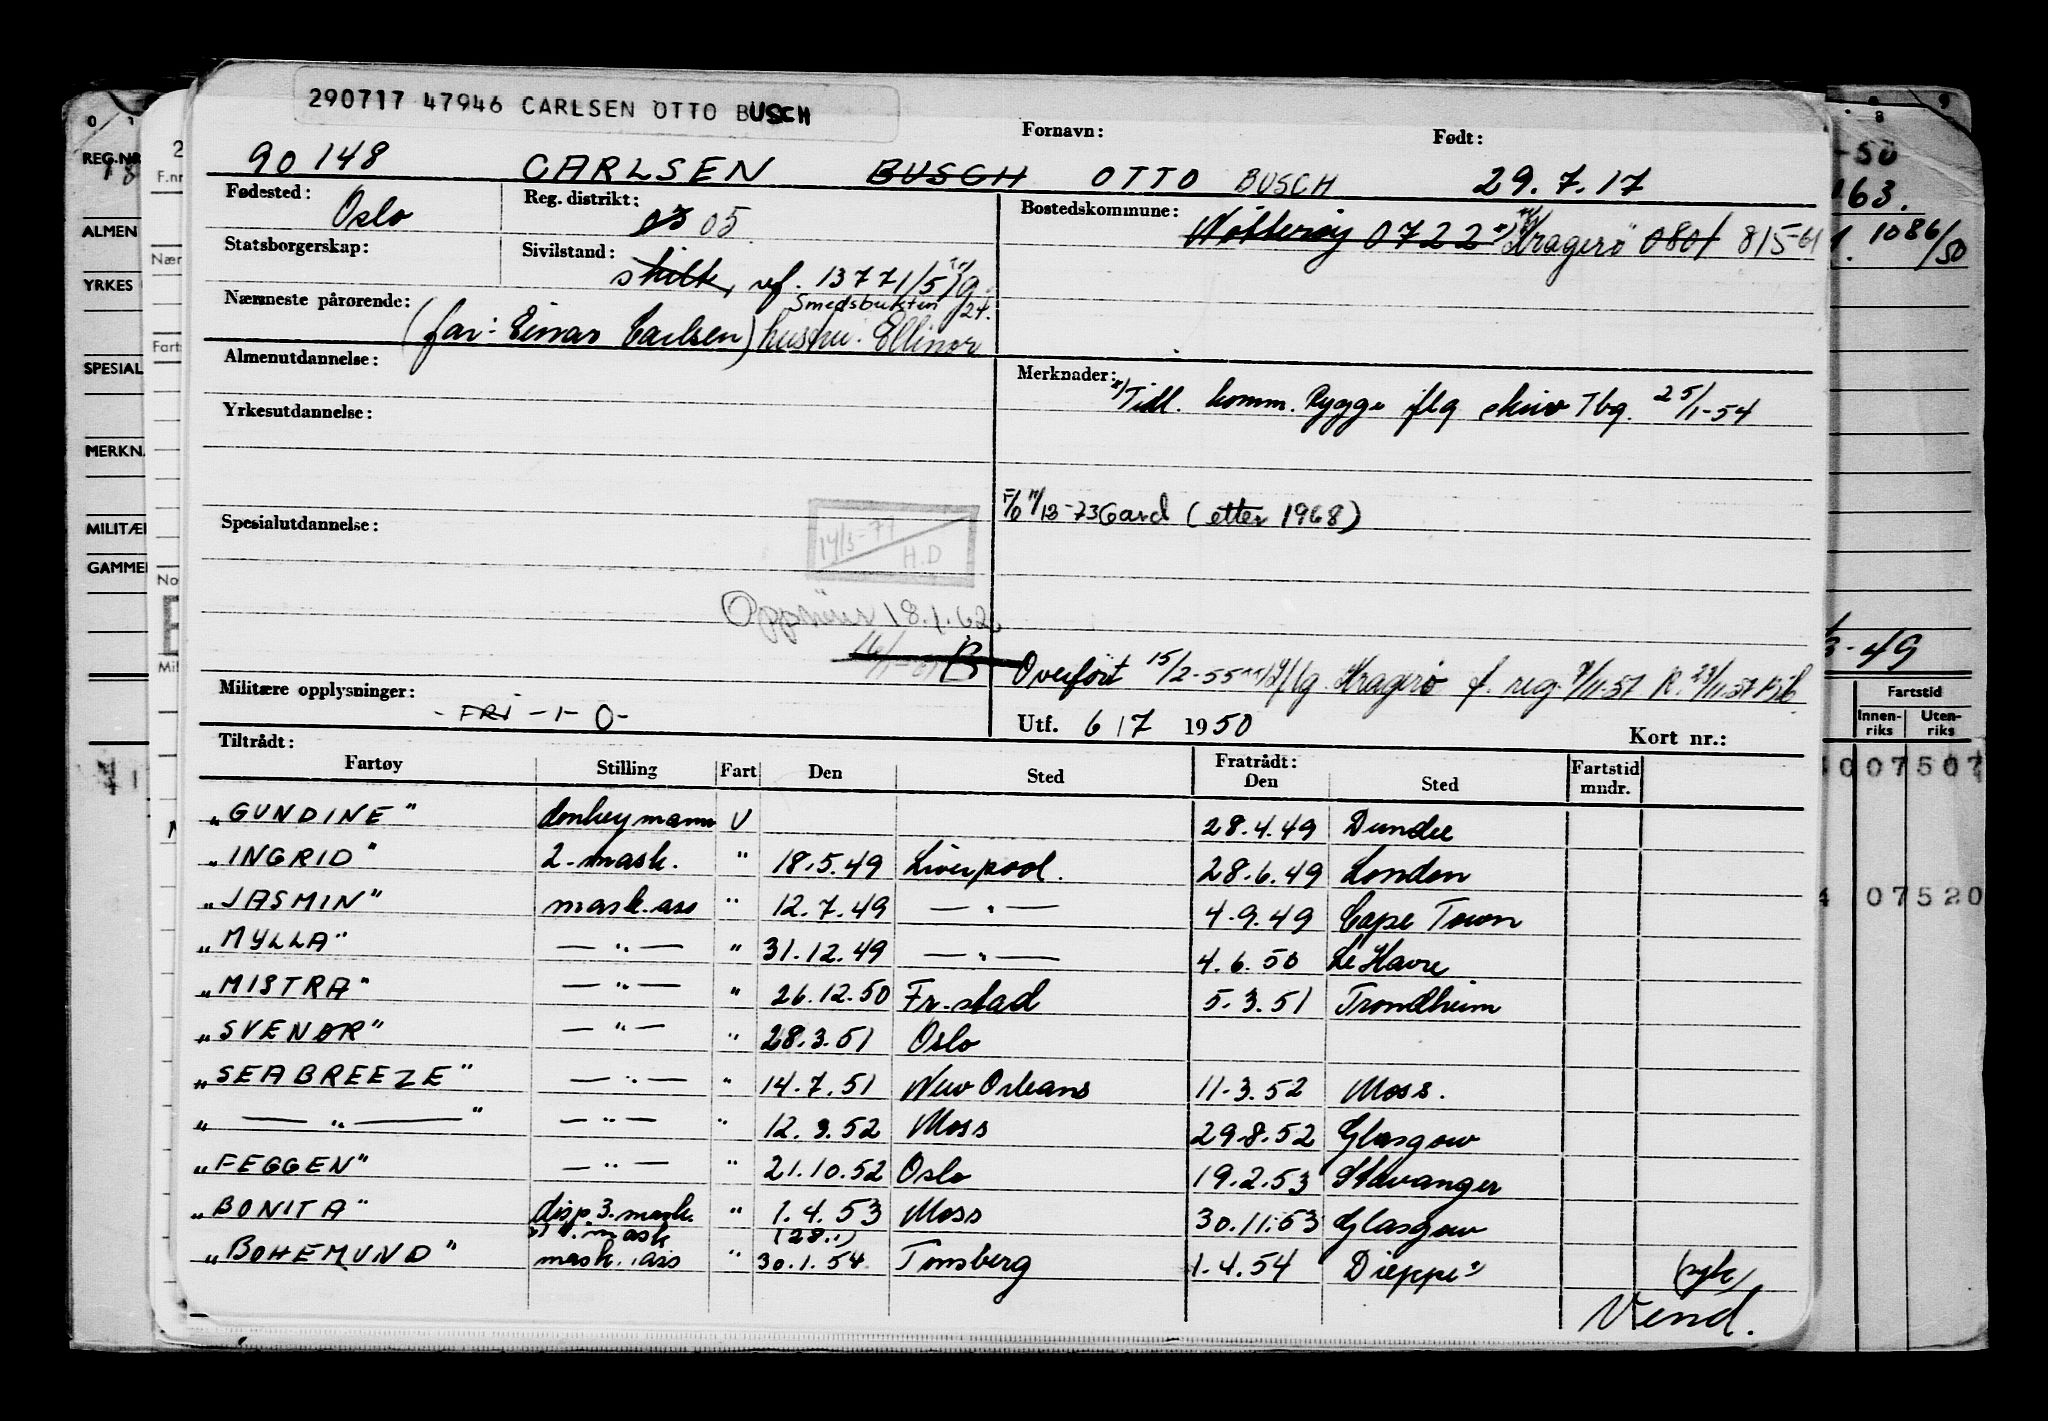 290717 47946 CARLSEN OTTO BUSCH
Fornavn: Født:
90148 CARLSEN BUSCH OTTO BUSCH 29.7.17
Fødested: Oslo Reg. distrikt: 05 Bostedskommune: Nøtterøy 0722 Kragerø 0801 815-61
Statsborgerskap: Sivilstand: skilt, ref. 13771/51
Nærmeste pårørende: (far: Einar Carlsen) hustru. Ellinor
Smedsbukten 24.
Almenutdannelse: Merknader: Tidl. komm. Rygge flg skriv Tbg. 25/1-54
Yrkesutdannelse:
F/O 11/12-73 Gard (etter 1968)
Spesialutdannelse:
14/3-77
H.D
18.1.62
Overført 15/2-55 flg. Kragerø f. reg. 9/11-57 K. 23/11-57
Militære opplysninger: - FRI -1- 0-
Utf. 6/7 1950 Kort nr.:
Tiltrådt: Fratrådt:
Fartøy Stilling Fart Den Sted Den Sted Fartstid mndr.
"GUNDINE" donkeymann U 28.4.49 Dundee
"INGRID" 2. mask. " 18.5.49 Liverpool. 28.6.49 London
"JASMIN" mask. ass " 12.7.49 — " — 4.9.49 Cape Town
"MYLLA" — " — " 31.12.49 — " — 4.6.50 Le Havre
"MISTRA" — " — " 26.12.50 Fr.stad 5.3.51 Trondheim
"SVENØR" — " — " 28.3.51 Oslo
"SEABREEZE" — " — " 14.7.51 New Orleans 11.3.52 Moss.
" — " — " — " — " 12.3.52 Moss 29.8.52 Glasgow
"FEGGEN" — " — " 21.10.52 Oslo 19.2.53 Stavanger
"BONITA" disp. 3. mask. " 1.4.53 Moss 30.11.53 Glasgow
mask (28.1)
"BOHEMUND" mask. ass " 30.1.54 Tønsberg 1.4.54 Dieppe (syk)
Vend.
REG.NR
ALMEN
YRKES
SPESIAL
MERKN.
MILITÆ
GAMME
F.nr
Nær
Farts
No
Mil
-50
63.
1086/50
3-49
Fartstid
Innen-riks Uten-riks
007507
07520